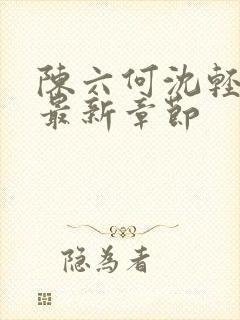 陳六何沈輕
最新章節
隐為者